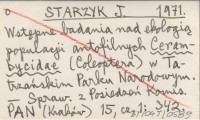 STARZYK J. 1971.
Wstępne badania nad ekologią
populacji antofilnych Ceram-
bycidae (Coleoptera) w Ta-
trzańskim Parku Narodowym.
— Spraw. z Posiedzeń Komis.
PAN (Kraków) 15, cz. 1: 342.